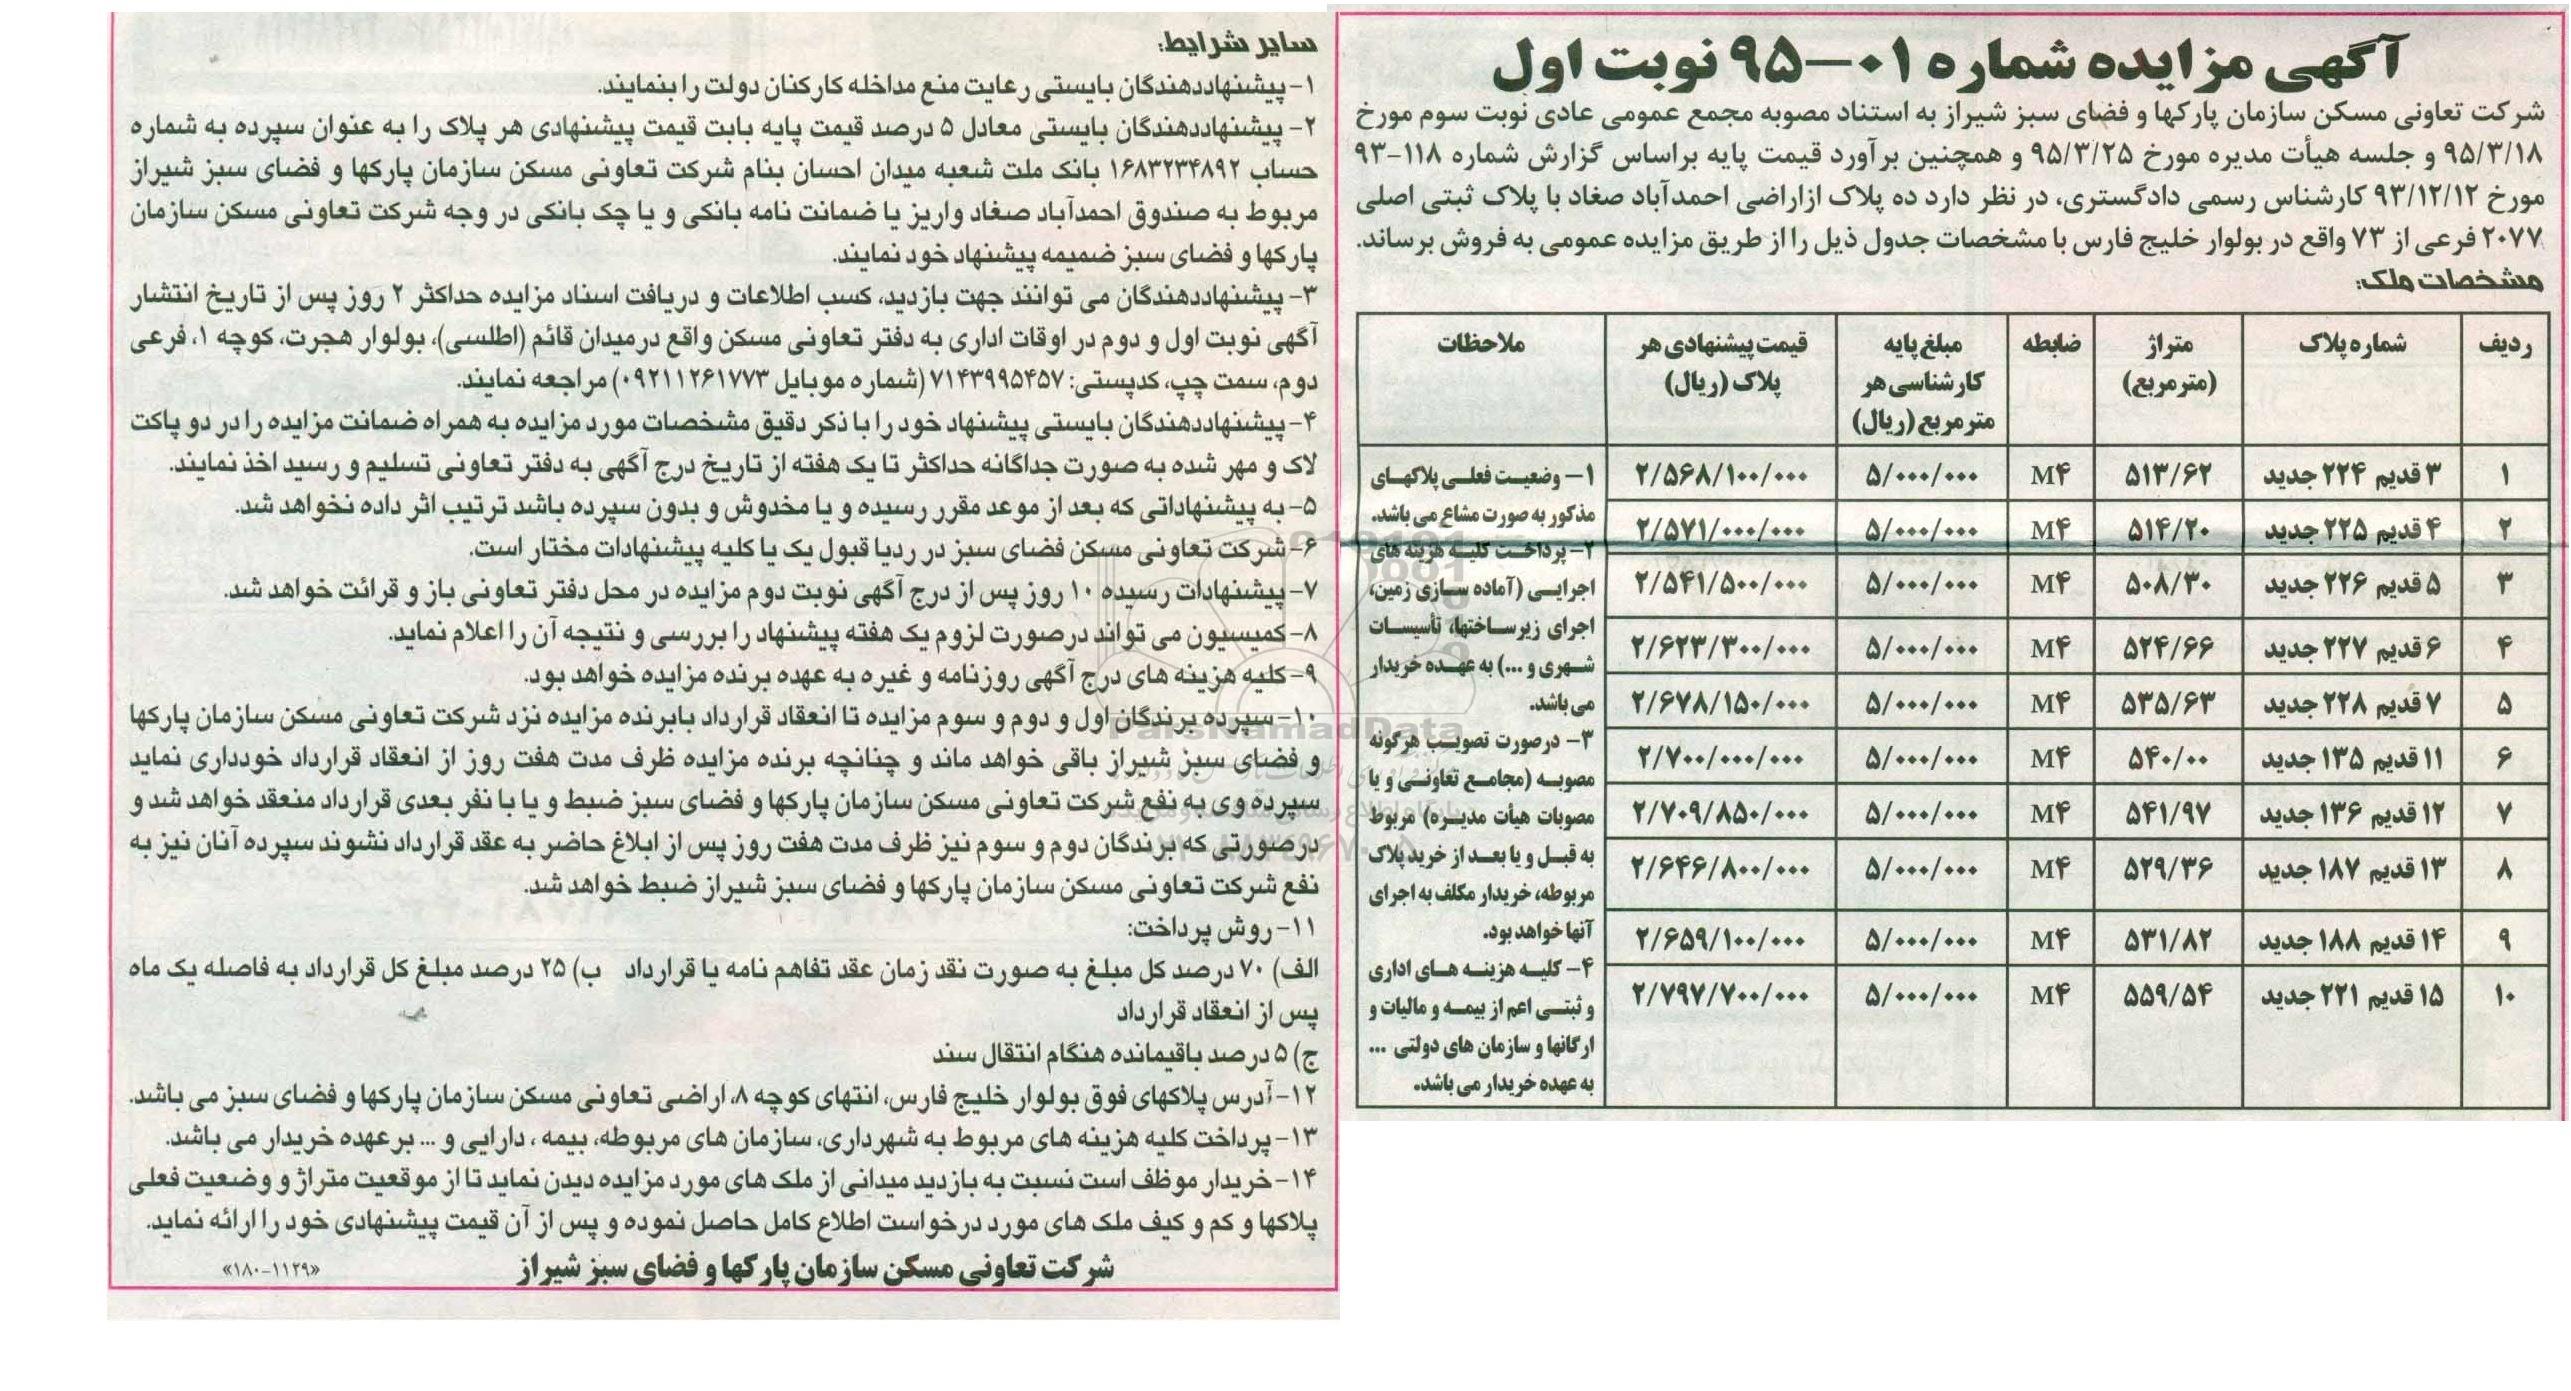 آگهی مزایده شماره ۰۱-۹۵ نوبت اول
شرکت تعاونی مسکن سازمان پارکها و فضای سبز شیراز به استناد مصوبه مجمع عمومی عادی نوبت سوم مورخ
۹۵/۳/۱۸ و جلسه هیأت مدیره مورخ ۹۵/۳/۲۵ و همچنین برآورد قیمت پایه براساس گزارش شماره ۱۱۸-۹۳
مورخ ۹۳/۱۲/۱۲ کارشناس رسمی دادگستری، در نظر دارد ده پلاک ازاراضی احمدآباد صغاد با پلاک ثبتی اصلی
۲۰۷۷ فرعی از ۷۳ واقع در بولوار خلیج فارس با مشخصات جدول ذیل را از طریق مزایده عمومی به فروش برساند.
مشخصات ملک:
ردیف شماره پلاک متراژ (مترمربع) ضابطه مبلغ پایه کارشناسی هر مترمربع (ریال) قیمت پیشنهادی هر پلاک (ریال) ملاحظات
۱ ۳ قدیم ۲۲۴ جدید ۵۱۳/۶۲ M۴ ۵/۰۰۰/۰۰۰ ۲/۵۶۸/۱۰۰/۰۰۰
۲ ۴ قدیم ۲۲۵ جدید ۵۱۴/۲۰ M۴ ۵/۰۰۰/۰۰۰ ۲/۵۷۱/۰۰۰/۰۰۰
۳ ۵ قدیم ۲۲۶ جدید ۵۰۸/۳۰ M۴ ۵/۰۰۰/۰۰۰ ۲/۵۴۱/۵۰۰/۰۰۰
۴ ۶ قدیم ۲۲۷ جدید ۵۲۴/۶۶ M۴ ۵/۰۰۰/۰۰۰ ۲/۶۲۳/۳۰۰/۰۰۰
۵ ۷ قدیم ۲۲۸ جدید ۵۳۵/۶۳ M۴ ۵/۰۰۰/۰۰۰ ۲/۶۷۸/۱۵۰/۰۰۰
۶ ۱۱ قدیم ۱۳۵ جدید ۵۴۰/۰۰ M۴ ۵/۰۰۰/۰۰۰ ۲/۷۰۰/۰۰۰/۰۰۰
۷ ۱۲ قدیم ۱۳۶ جدید ۵۴۱/۹۷ M۴ ۵/۰۰۰/۰۰۰ ۲/۷۰۹/۸۵۰/۰۰۰
۸ ۱۳ قدیم ۱۸۷ جدید ۵۲۹/۳۶ M۴ ۵/۰۰۰/۰۰۰ ۲/۶۴۶/۸۰۰/۰۰۰
۹ ۱۴ قدیم ۱۸۸ جدید ۵۳۱/۸۲ M۴ ۵/۰۰۰/۰۰۰ ۲/۶۵۹/۱۰۰/۰۰۰
۱۰ ۱۵ قدیم ۲۲۱ جدید ۵۵۹/۵۴ M۴ ۵/۰۰۰/۰۰۰ ۲/۷۹۷/۷۰۰/۰۰۰
۱- وضعیت فعلی پلاکهای
مذکور به صورت مشاع می باشد.
۲- پرداخت کلیه هزینه های
اجرایی (آماده سازی زمین،
اجرای زیرساختها، تأسیسات
شهری و ...) به عهده خریدار
می باشد.
۳- درصورت تصویب هرگونه
مصوبه (مجامع تعاونی و یا
مصوبات هیأت مدیره) مربوط
به قبل و یا بعد از خرید پلاک
مربوطه، خریدار مکلف به اجرای
آنها خواهد بود.
۴- کلیه هزینه های اداری
و ثبتی اعم از بیمه و مالیات و
ارگانها و سازمان های دولتی ...
به عهده خریدار می باشد.
سایر شرایط:
۱- پیشنهاددهندگان بایستی رعایت منع مداخله کارکنان دولت را بنمایند.
۲- پیشنهاددهندگان بایستی معادل ۵ درصد قیمت پایه بابت قیمت پیشنهادی هر پلاک را به عنوان سپرده به شماره
حساب ۱۶۸۳۲۳۴۸۹۲ بانک ملت شعبه میدان احسان بنام شرکت تعاونی مسکن سازمان پارکها و فضای سبز شیراز
مربوط به صندوق احمدآباد صغاد واریز یا ضمانت نامه بانکی و یا چک بانکی در وجه شرکت تعاونی مسکن سازمان
پارکها و فضای سبز ضمیمه پیشنهاد خود نمایند.
۳- پیشنهاددهندگان می توانند جهت بازدید، کسب اطلاعات و دریافت اسناد مزایده حداکثر ۲ روز پس از تاریخ انتشار
آگهی نوبت اول و دوم در اوقات اداری به دفتر تعاونی مسکن واقع درمیدان قائم (اطلسی)، بولوار هجرت، کوچه ۱، فرعی
دوم، سمت چپ، کدپستی: ۷۱۴۳۹۹۵۴۵۷ (شماره موبایل ۰۹۲۱۱۲۶۱۷۷۳) مراجعه نمایند.
۴- پیشنهاددهندگان بایستی پیشنهاد خود را با ذکر دقیق مشخصات مورد مزایده به همراه ضمانت مزایده را در دو پاکت
لاک و مهر شده به صورت جداگانه حداکثر تا یک هفته از تاریخ درج آگهی به دفتر تعاونی تسلیم و رسید اخذ نمایند.
۵- به پیشنهاداتی که بعد از موعد مقرر رسیده و یا مخدوش و بدون سپرده باشد ترتیب اثر داده نخواهد شد.
۶- شرکت تعاونی مسکن فضای سبز در ردیا قبول یک یا کلیه پیشنهادات مختار است.
۷- پیشنهادات رسیده ۱۰ روز پس از درج آگهی نوبت دوم مزایده در محل دفتر تعاونی باز و قرائت خواهد شد.
۸- کمیسیون می تواند درصورت لزوم یک هفته پیشنهاد را بررسی و نتیجه آن را اعلام نماید.
۹- کلیه هزینه های درج آگهی روزنامه و غیره به عهده برنده مزایده خواهد بود.
۱۰- سپرده برندگان اول و دوم و سوم مزایده تا انعقاد قرارداد بابرنده مزایده نزد شرکت تعاونی مسکن سازمان پارکها
و فضای سبز شیراز باقی خواهد ماند و چنانچه برنده مزایده ظرف مدت هفت روز از انعقاد قرارداد خودداری نماید
سپرده وی به نفع شرکت تعاونی مسکن سازمان پارکها و فضای سبز ضبط و یا با نفر بعدی قرارداد منعقد خواهد شد و
درصورتی که برندگان دوم و سوم نیز ظرف مدت هفت روز پس از ابلاغ حاضر به عقد قرارداد نشوند سپرده آنان نیز به
نفع شرکت تعاونی مسکن سازمان پارکها و فضای سبز شیراز ضبط خواهد شد.
۱۱- روش پرداخت:
الف) ۷۰ درصد کل مبلغ به صورت نقد زمان عقد تفاهم نامه یا قرارداد ب) ۲۵ درصد مبلغ کل قرارداد به فاصله یک ماه
پس از انعقاد قرارداد
ج) ۵ درصد باقیمانده هنگام انتقال سند
۱۲- آدرس پلاکهای فوق بولوار خلیج فارس، انتهای کوچه ۸، اراضی تعاونی مسکن سازمان پارکها و فضای سبز می باشد.
۱۳- پرداخت کلیه هزینه های مربوط به شهرداری، سازمان های مربوطه، بیمه، دارایی و ... برعهده خریدار می باشد.
۱۴- خریدار موظف است نسبت به بازدید میدانی از ملک های مورد مزایده دیدن نماید تا از موقعیت متراژ و وضعیت فعلی
پلاکها و کم و کیف ملک های مورد درخواست اطلاع کامل حاصل نموده و پس از آن قیمت پیشنهادی خود را ارائه نماید.
شرکت تعاونی مسکن سازمان پارکها و فضای سبز شیراز
«۱۸۰-۱۱۲۹»
ParsNamadData